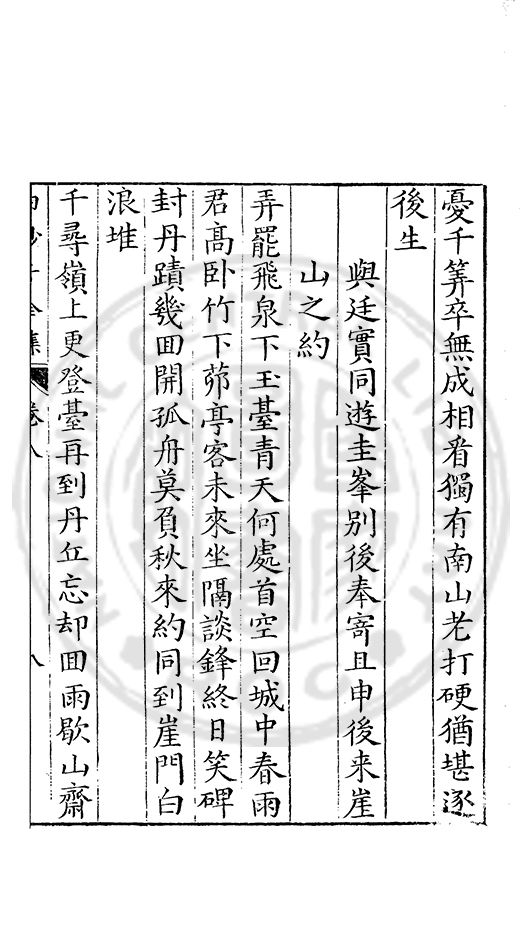 憂千筭卒無成相看獨有南山老打硬猶堪逐
後生
與廷實同遊圭峯别後奉寄且申後来崖
山之約
弄罷飛泉下玉臺青天何處首空回城中春雨
君高卧竹下茆亭客未來坐隔談鋒終日笑碑
封丹蹟幾囬開孤舟莫負秋來約同到崖門白
浪堆
千尋嶺上更登臺再到丹丘忘却囬雨歇山齋
卷八
八